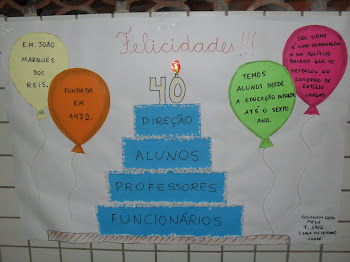 Felicidades!!!
E.M. JOÃO
MARQUES
DOS
REIS.
FUNDADA
EM
1972.
40
DIREÇÃO
ALUNOS
PROFESSORES
FUNCIONÁRIOS
TEMOS
ALUNOS DESDE
A EDUCAÇÃO INFANTIL
ATÉ O SEXTO
ANO.
SEU NOME
É UMA HOMENAGEM
A UM POLÍTICO
BAIANO QUE SE
DESTACOU NO
GOVERNO DE
GETÚLIO
VARGAS.
PELA
T. 1502